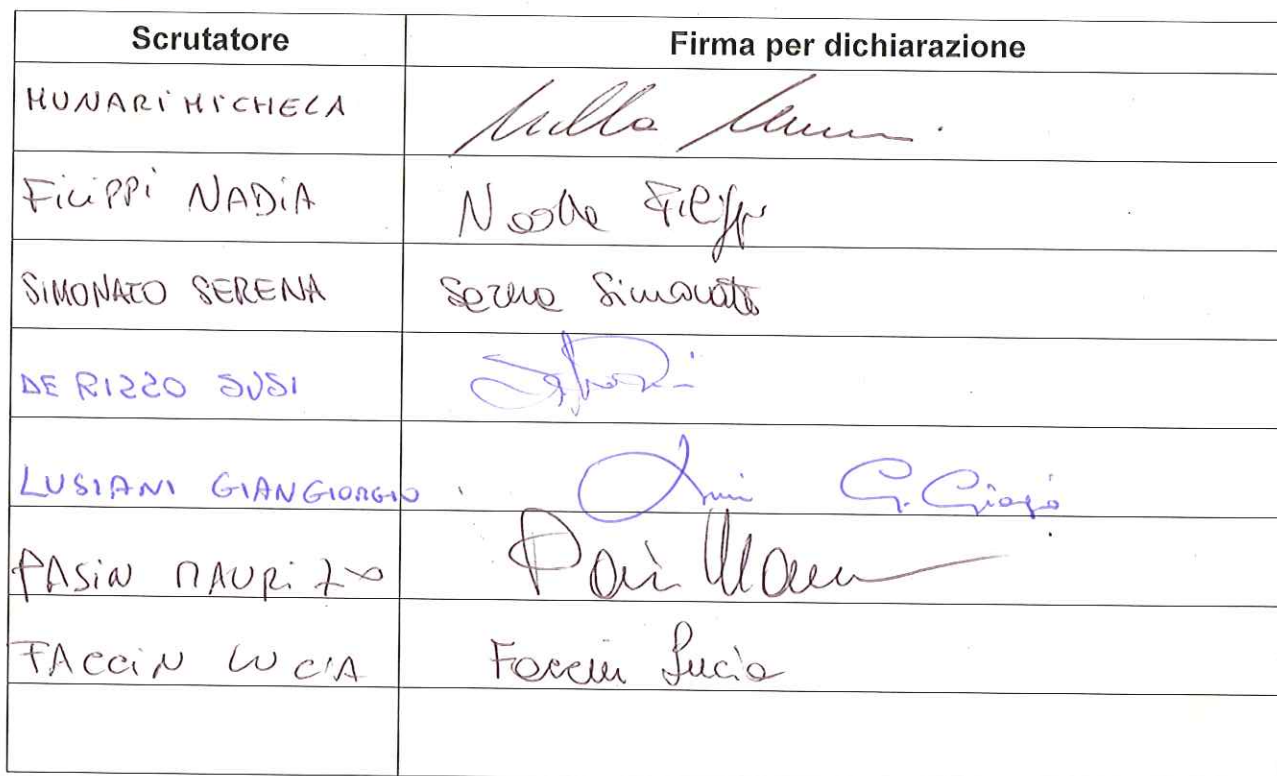 Scrutatore Firma per dichiarazione
MUNARI MICHELA
FILIPPI NADIA Nadia Filippi
SIMONATO SERENA Serena Simonato
DE RIZZO SUSI
LUSIANI GIANGIORGIO G. Giorgio
PASIN MAURIZIO
FACCIN LUCIA Faccin Lucia